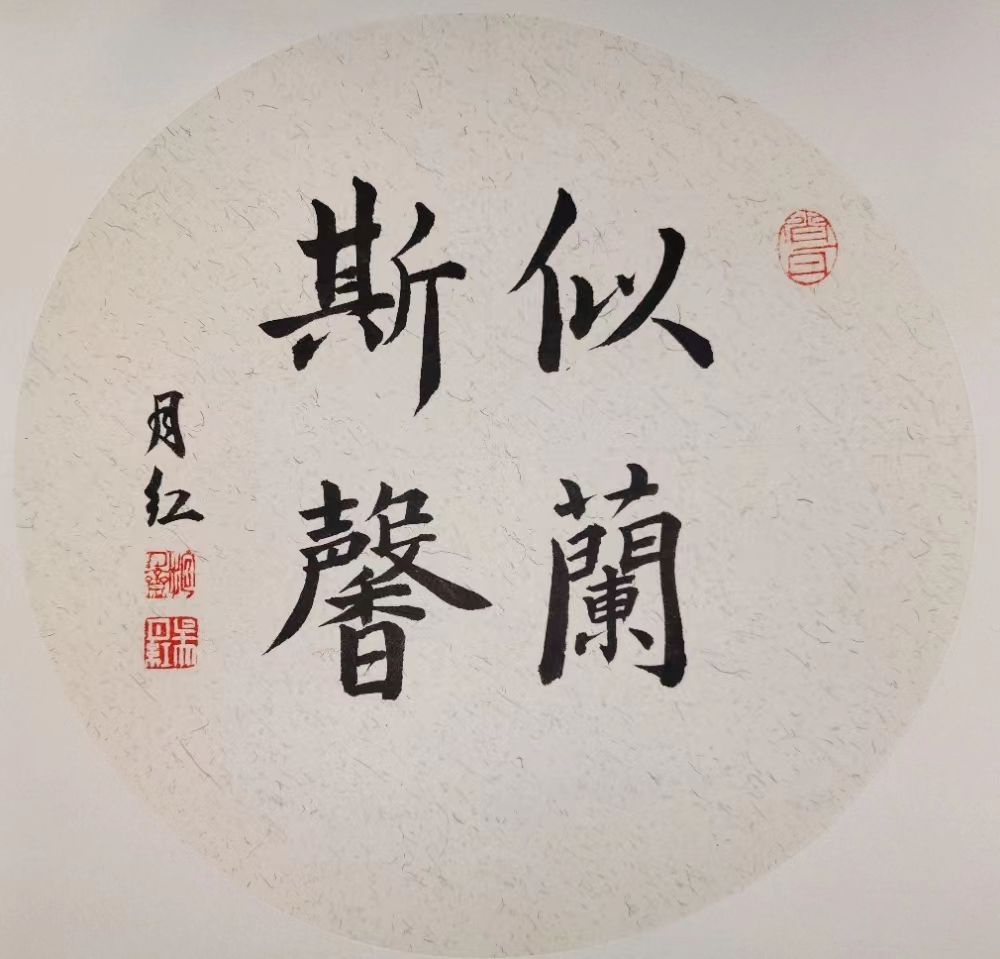 似蘭
斯馨
月红